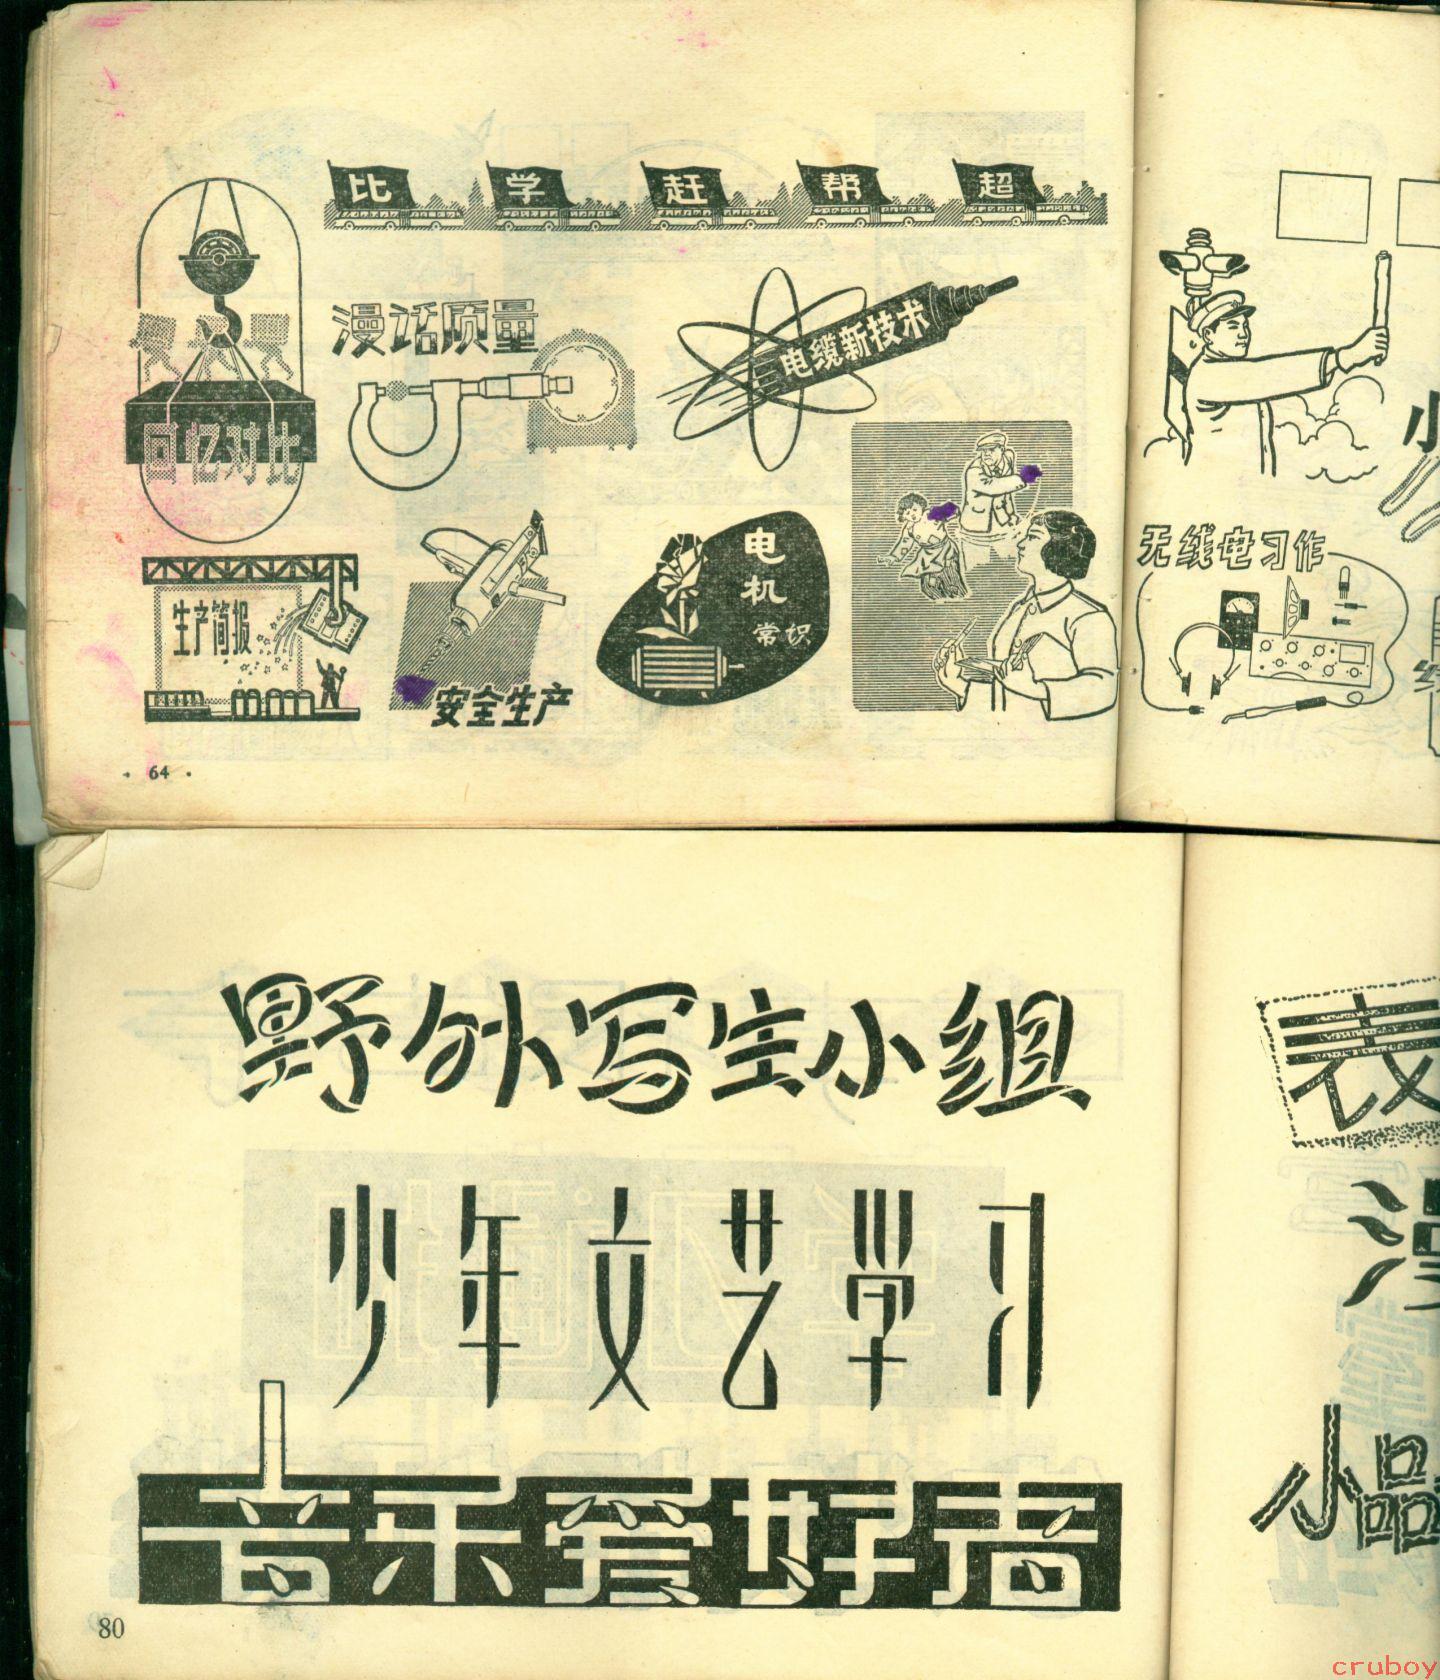 比 学 赶 帮 超
漫话质量
电缆新技术
回忆对比
生产简报
安全生产
电机
常识
· 64 ·
小
无线电习作
野外写生小组
少年文艺学习
音乐爱好者
80
表
漫
小品
cruboy